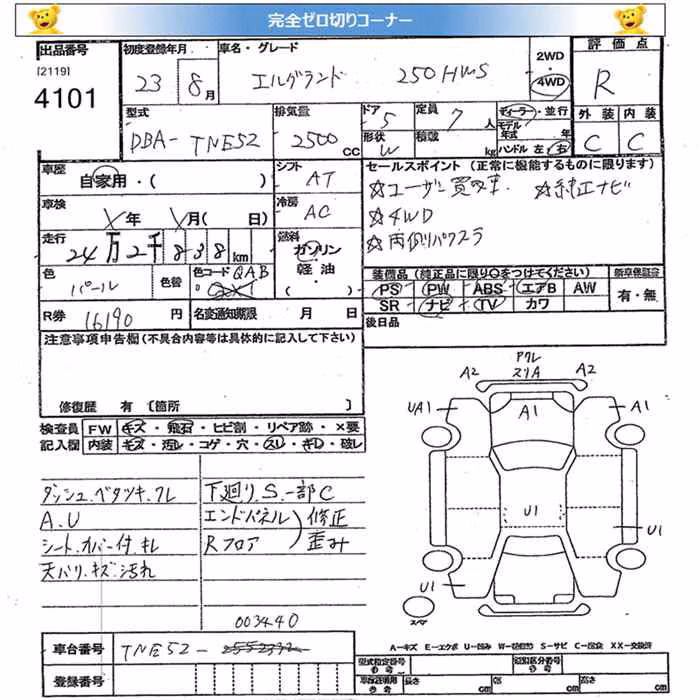 完全ゼロ切りコーナー
出品番号
[2119]
4101
初度登録年月
23 8月
車名・グレード
エルグランド 250HWS
2WD
4WD
評価点
R
外装 内装
C C
型式
DBA-TNE52
排気量
2500cc
ドア
5
形状
W
定員
7人
積載
kg
ディーラー・並行
モデル年式 年
ハンドル 左 右
車歴
自家用・( )
シフト
AT
セールスポイント(正常に機能するものに限ります)
☆ユーザー買取車 ☆純正ナビ
☆4WD
☆両側パワスラ
車検
年 月( 日)
冷房
AC
走行
24万2千838km
燃料
ガソリン
軽油
( )
色
パール
色替
色コード QAB
装備品(純正品に限り○をつけてください)
PS PW ABS エアB AW
SR ナビ TV カワ
新車保証書
有・無
R券 16190円
名変通知期限 月 日
後日品
注意事項申告欄(不具合内容等は具体的に記入して下さい)
修復歴 有〔箇所 〕
検査員記入欄
FW キズ・飛石・ヒビ割・リペア跡・×要
内装 キズ・汚レ・コゲ・穴・スレ・キレ・破レ
ダッシュ.ベタツキ.ワレ
A.U
シート.カバー付.キレ
天バリ.キズ.汚れ
下廻り.S.一部C
エンドパネル
Rフロア
修正
歪み
003440
ワレ
スリA
A2
A2
UA1
A1
A1
U1
U1
U1
スペア
車台番号 TNE52-
登録番号
A－キズ E－エクボ U－凹み W－波(跡) S－サビ C－腐食 XX－交換済
型式指定番号
参考
類別区分番号
参考
車庫証明用
参考
長さ cm
巾 cm
高さ cm